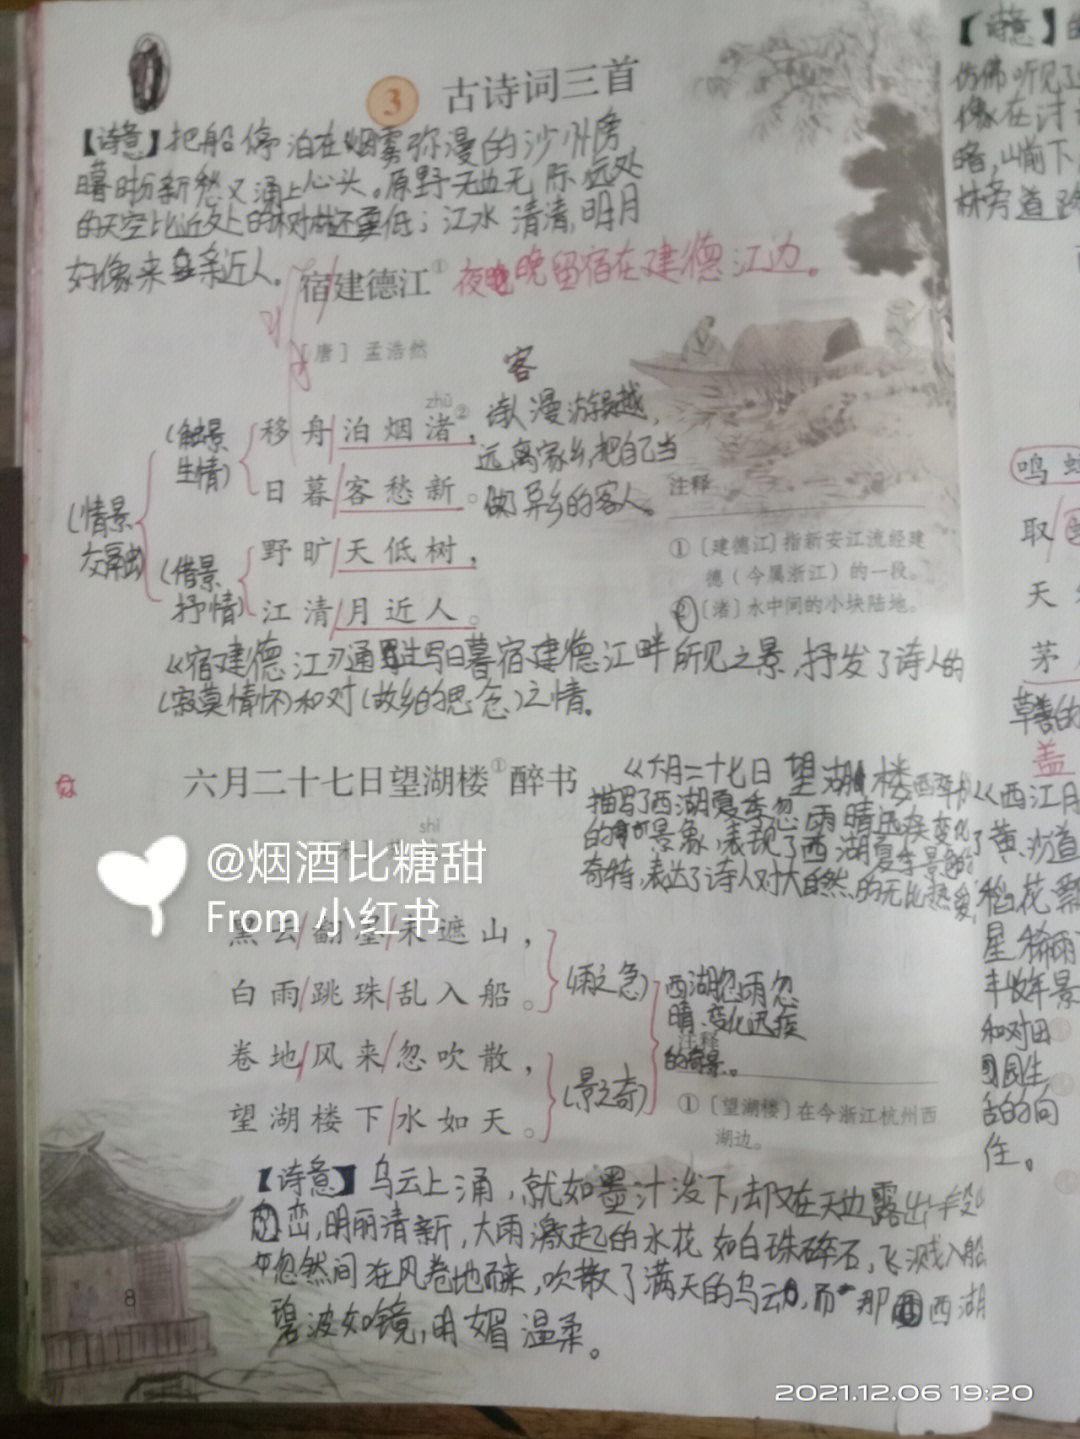 3 古诗词三首
【诗意】把船停泊在烟雾弥漫的沙州旁
暮时份新愁又涌上心头。原野无边无际远处
的天空比近处上的树林还要低；江水清清，明月
好像来亲近人。
宿建德江① 夜晚留宿在建德江边。
[唐] 孟浩然
客
zhǔ
移舟泊烟渚②，
日暮客愁新。
野旷天低树，
江清月近人。
(触景
生情)
(借景
抒情)
(情景
交融)
诗人漫游吴越，
远离家乡，把自己当
做异乡的客人。
注释
①〔建德江〕指新安江流经建
德（今属浙江）的一段。
②〔渚〕水中间的小块陆地。
《宿建德江》通过写日暮宿建德江畔所见之景，抒发了诗人的
(寂寞情怀)和对(故乡的思念)之情。
六月二十七日望湖楼①醉书
shì
《六月二十七日望湖楼醉书》
描写了西湖夏季忽雨忽晴迅疾变化
景象，表现了西湖夏季景色的
奇特，表达了诗人对大自然的无比热爱
@烟酒比糖甜
From 小红书
黑云翻墨未遮山，
白雨跳珠乱入船。
卷地风来忽吹散，
望湖楼下水如天。
(雨之急)
(景之奇)
西湖忽雨忽
晴、变化迅疾
的奇景。
注释
①〔望湖楼〕在今浙江杭州西
湖边。
【诗意】乌云上涌，就如墨汁泼下，却又在天边露出一段山
峦，明丽清新，大雨激起的水花如白珠碎石，飞溅入船
忽然间狂风卷地而来，吹散了满天的乌云，而那西湖
碧波如镜，明媚温柔。
8
【诗意】
仿佛听见了
像在讨
略，山前下
林旁道路
鸣
取
天
茅
盖
《西江月
黄
稻花飘
星稀雨
丰收年景
和对田
园生
活的向
往。
2021.12.06 19:20